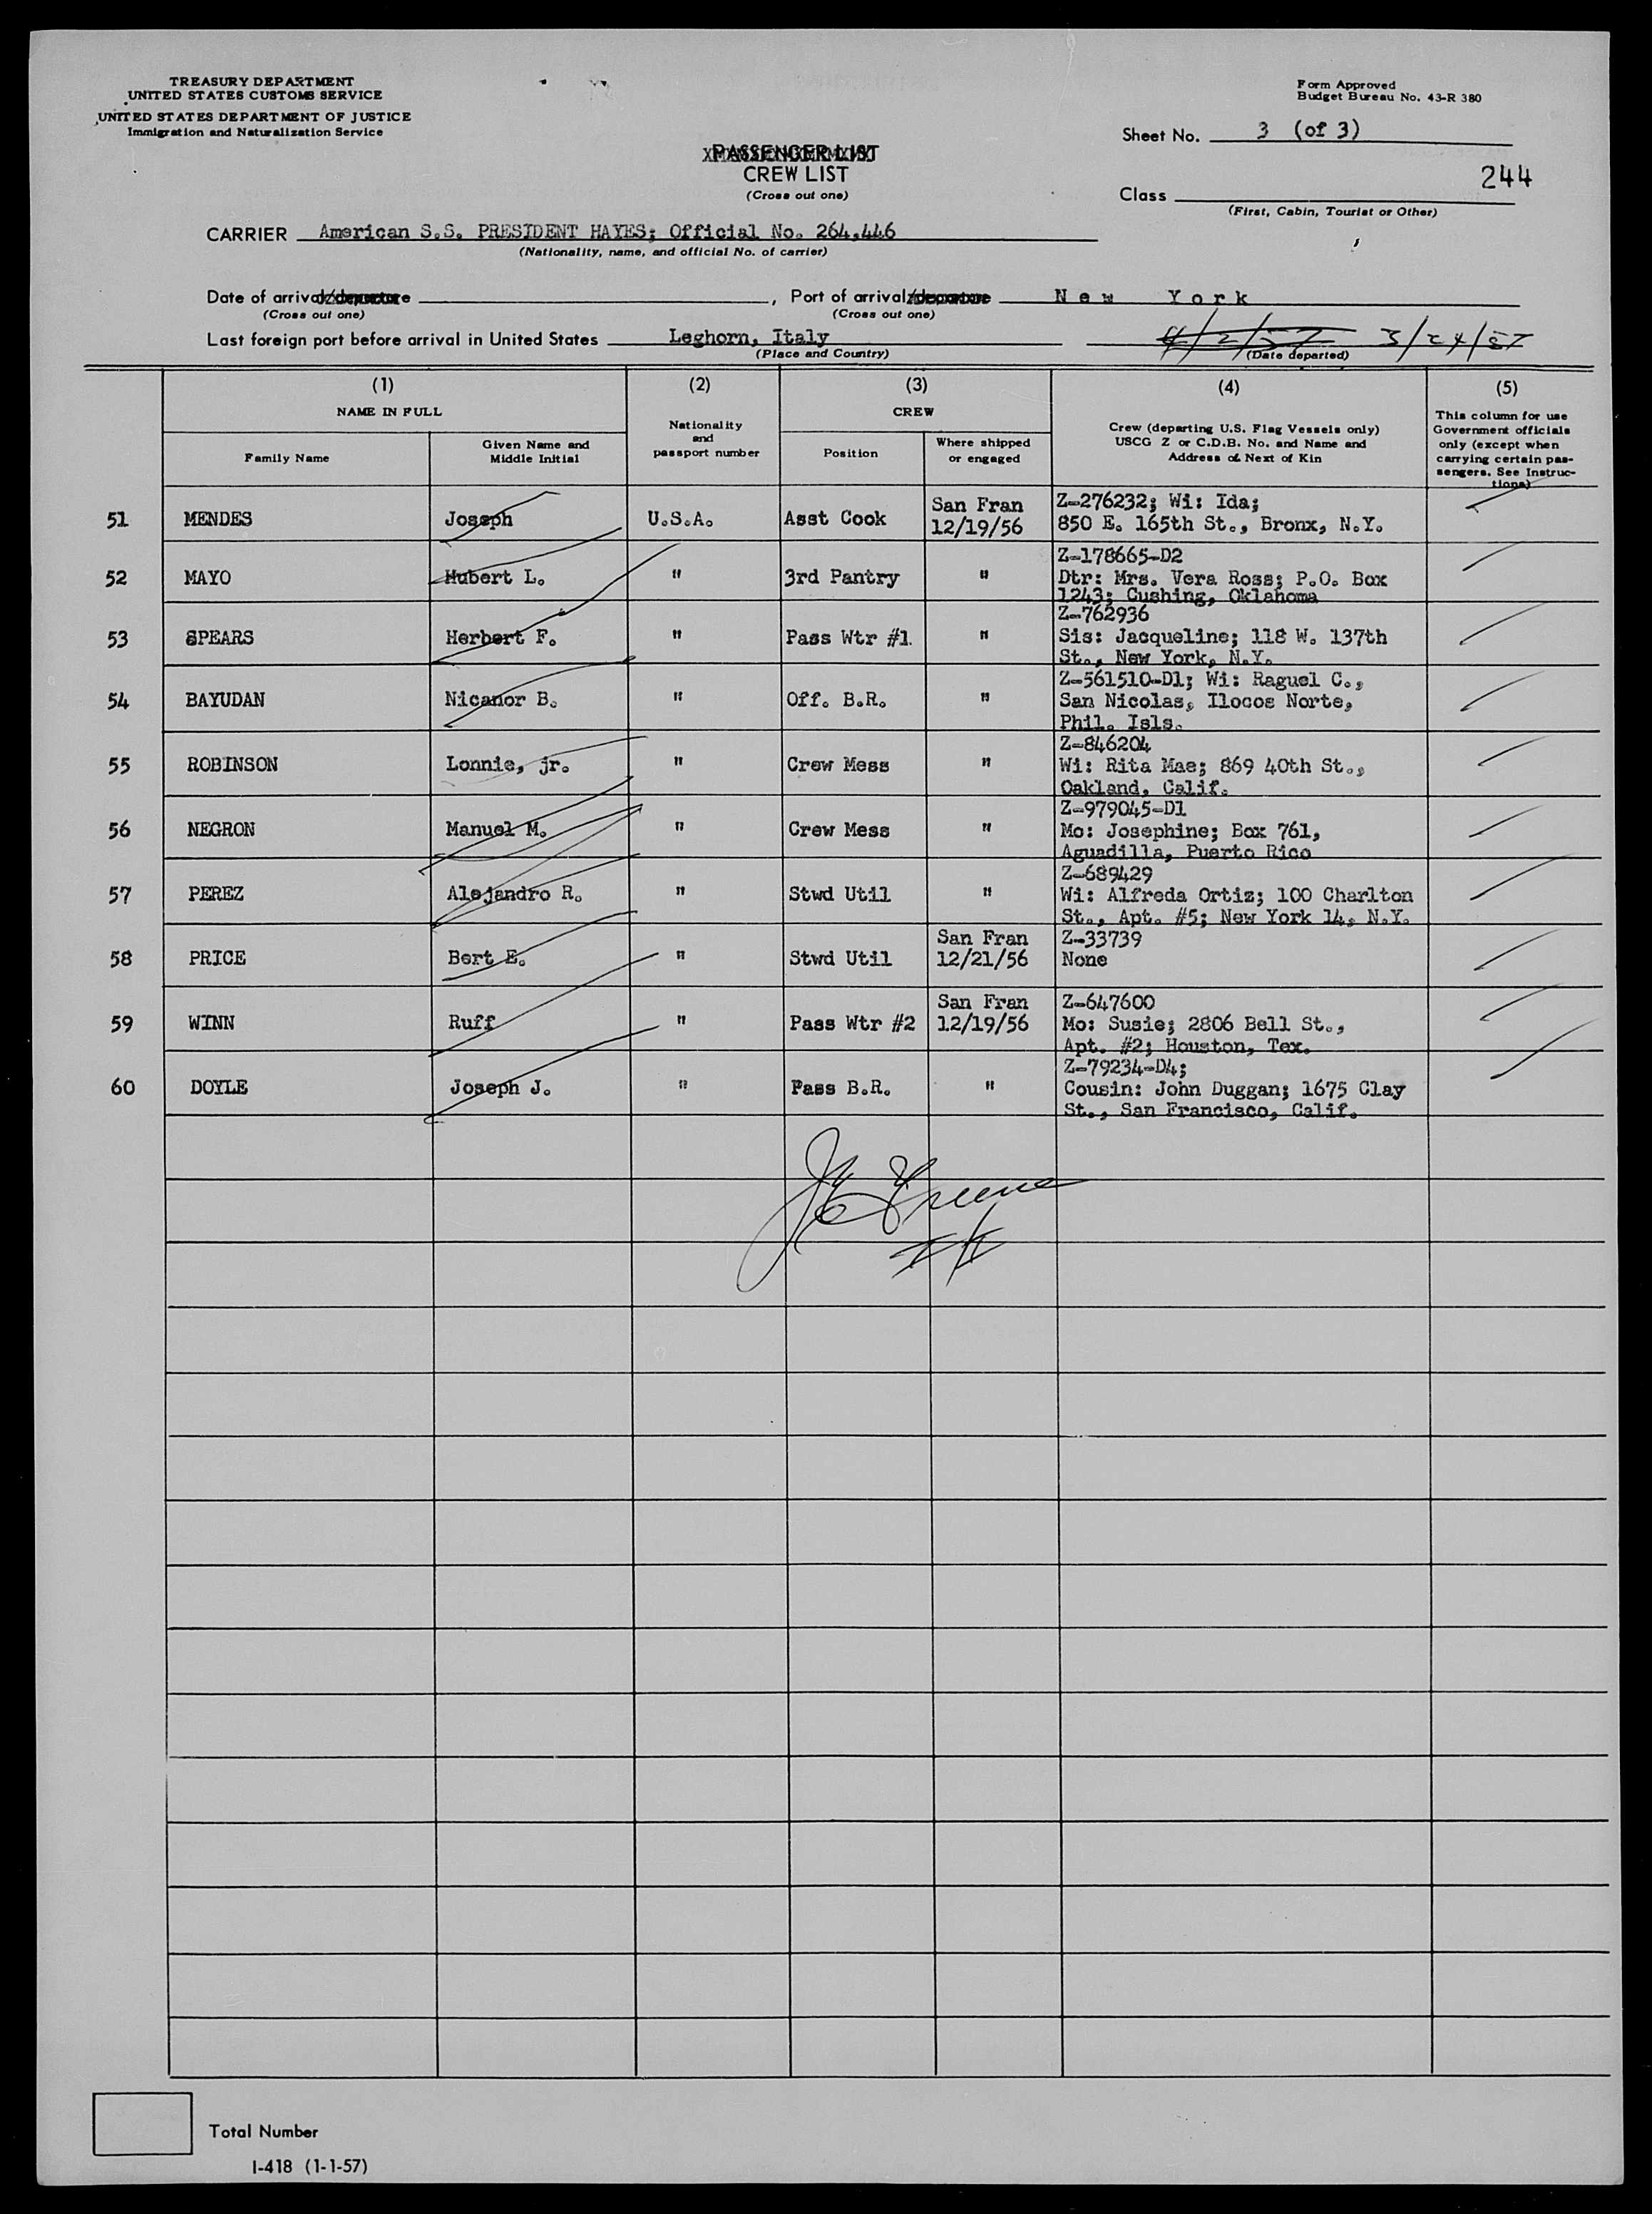 TREASURY DEPARTMENT
UNITED STATES CUSTOMS SERVICE
UNITED STATES DEPARTMENT OF JUSTICE
Immigration and Naturalization Service
Form Approved
Budget Bureau No. 43-R 380
Sheet No. 3 (of 3)
PASSENGER LIST
CREW LIST
(Cross out one)
244
Class
(First, Cabin, Tourist or Other)
CARRIER American S.S. PRESIDENT HAYES; Official No. 264,446
(Nationality, name, and official No. of carrier)
Date of arrival/departure , Port of arrival/departure New York
(Cross out one) (Cross out one)
Last foreign port before arrival in United States Leghorn, Italy 4/2/57 3/24/57
(Place and Country) (Date departed)
(1) (2) (3) (4) (5)
NAME IN FULL
Family Name
Given Name and
Middle Initial
Nationality
and
passport number
CREW
Position
Where shipped
or engaged
Crew (departing U.S. Flag Vessels only)
USCG Z or C.D.B. No. and Name and
Address of Next of Kin
This column for use
Government officials
only (except when
carrying certain pas-
sengers. See Instruc-
tions)
51 MENDES Joseph U.S.A. Asst Cook San Fran 12/19/56 Z-276232; Wi: Ida;
850 E. 165th St., Bronx, N.Y.
52 MAYO Hubert L. " 3rd Pantry " Z-178665-D2
Dtr: Mrs. Vera Ross; P.O. Box
1243; Cushing, Oklahoma
53 SPEARS Herbert F. " Pass Wtr #1 " Z-762936
Sis: Jacqueline; 118 W. 137th
St., New York, N.Y.
54 BAYUDAN Nicanor B. " Off. B.R. " Z-561510-D1; Wi: Raguel C.,
San Nicolas, Ilocos Norte,
Phil. Isls.
55 ROBINSON Lonnie, jr. " Crew Mess " Z-846204
Wi: Rita Mae; 869 40th St.,
Oakland, Calif.
56 NEGRON Manuel M. " Crew Mess " Z-979045-D1
Mo: Josephine; Box 761,
Aguadilla, Puerto Rico
57 PEREZ Alejandro R. " Stwd Util " Z-689429
Wi: Alfreda Ortiz; 100 Charlton
St., Apt. #5; New York 14, N.Y.
58 PRICE Bert E. " Stwd Util San Fran 12/21/56 Z-33739
None
59 WINN Ruff " Pass Wtr #2 San Fran 12/19/56 Z-647600
Mo: Susie; 2806 Bell St.,
Apt. #2; Houston, Tex.
60 DOYLE Joseph J. " Pass B.R. " Z-79234-D4;
Cousin: John Duggan; 1675 Clay
St., San Francisco, Calif.
Greene
Total Number
I-418 (1-1-57)